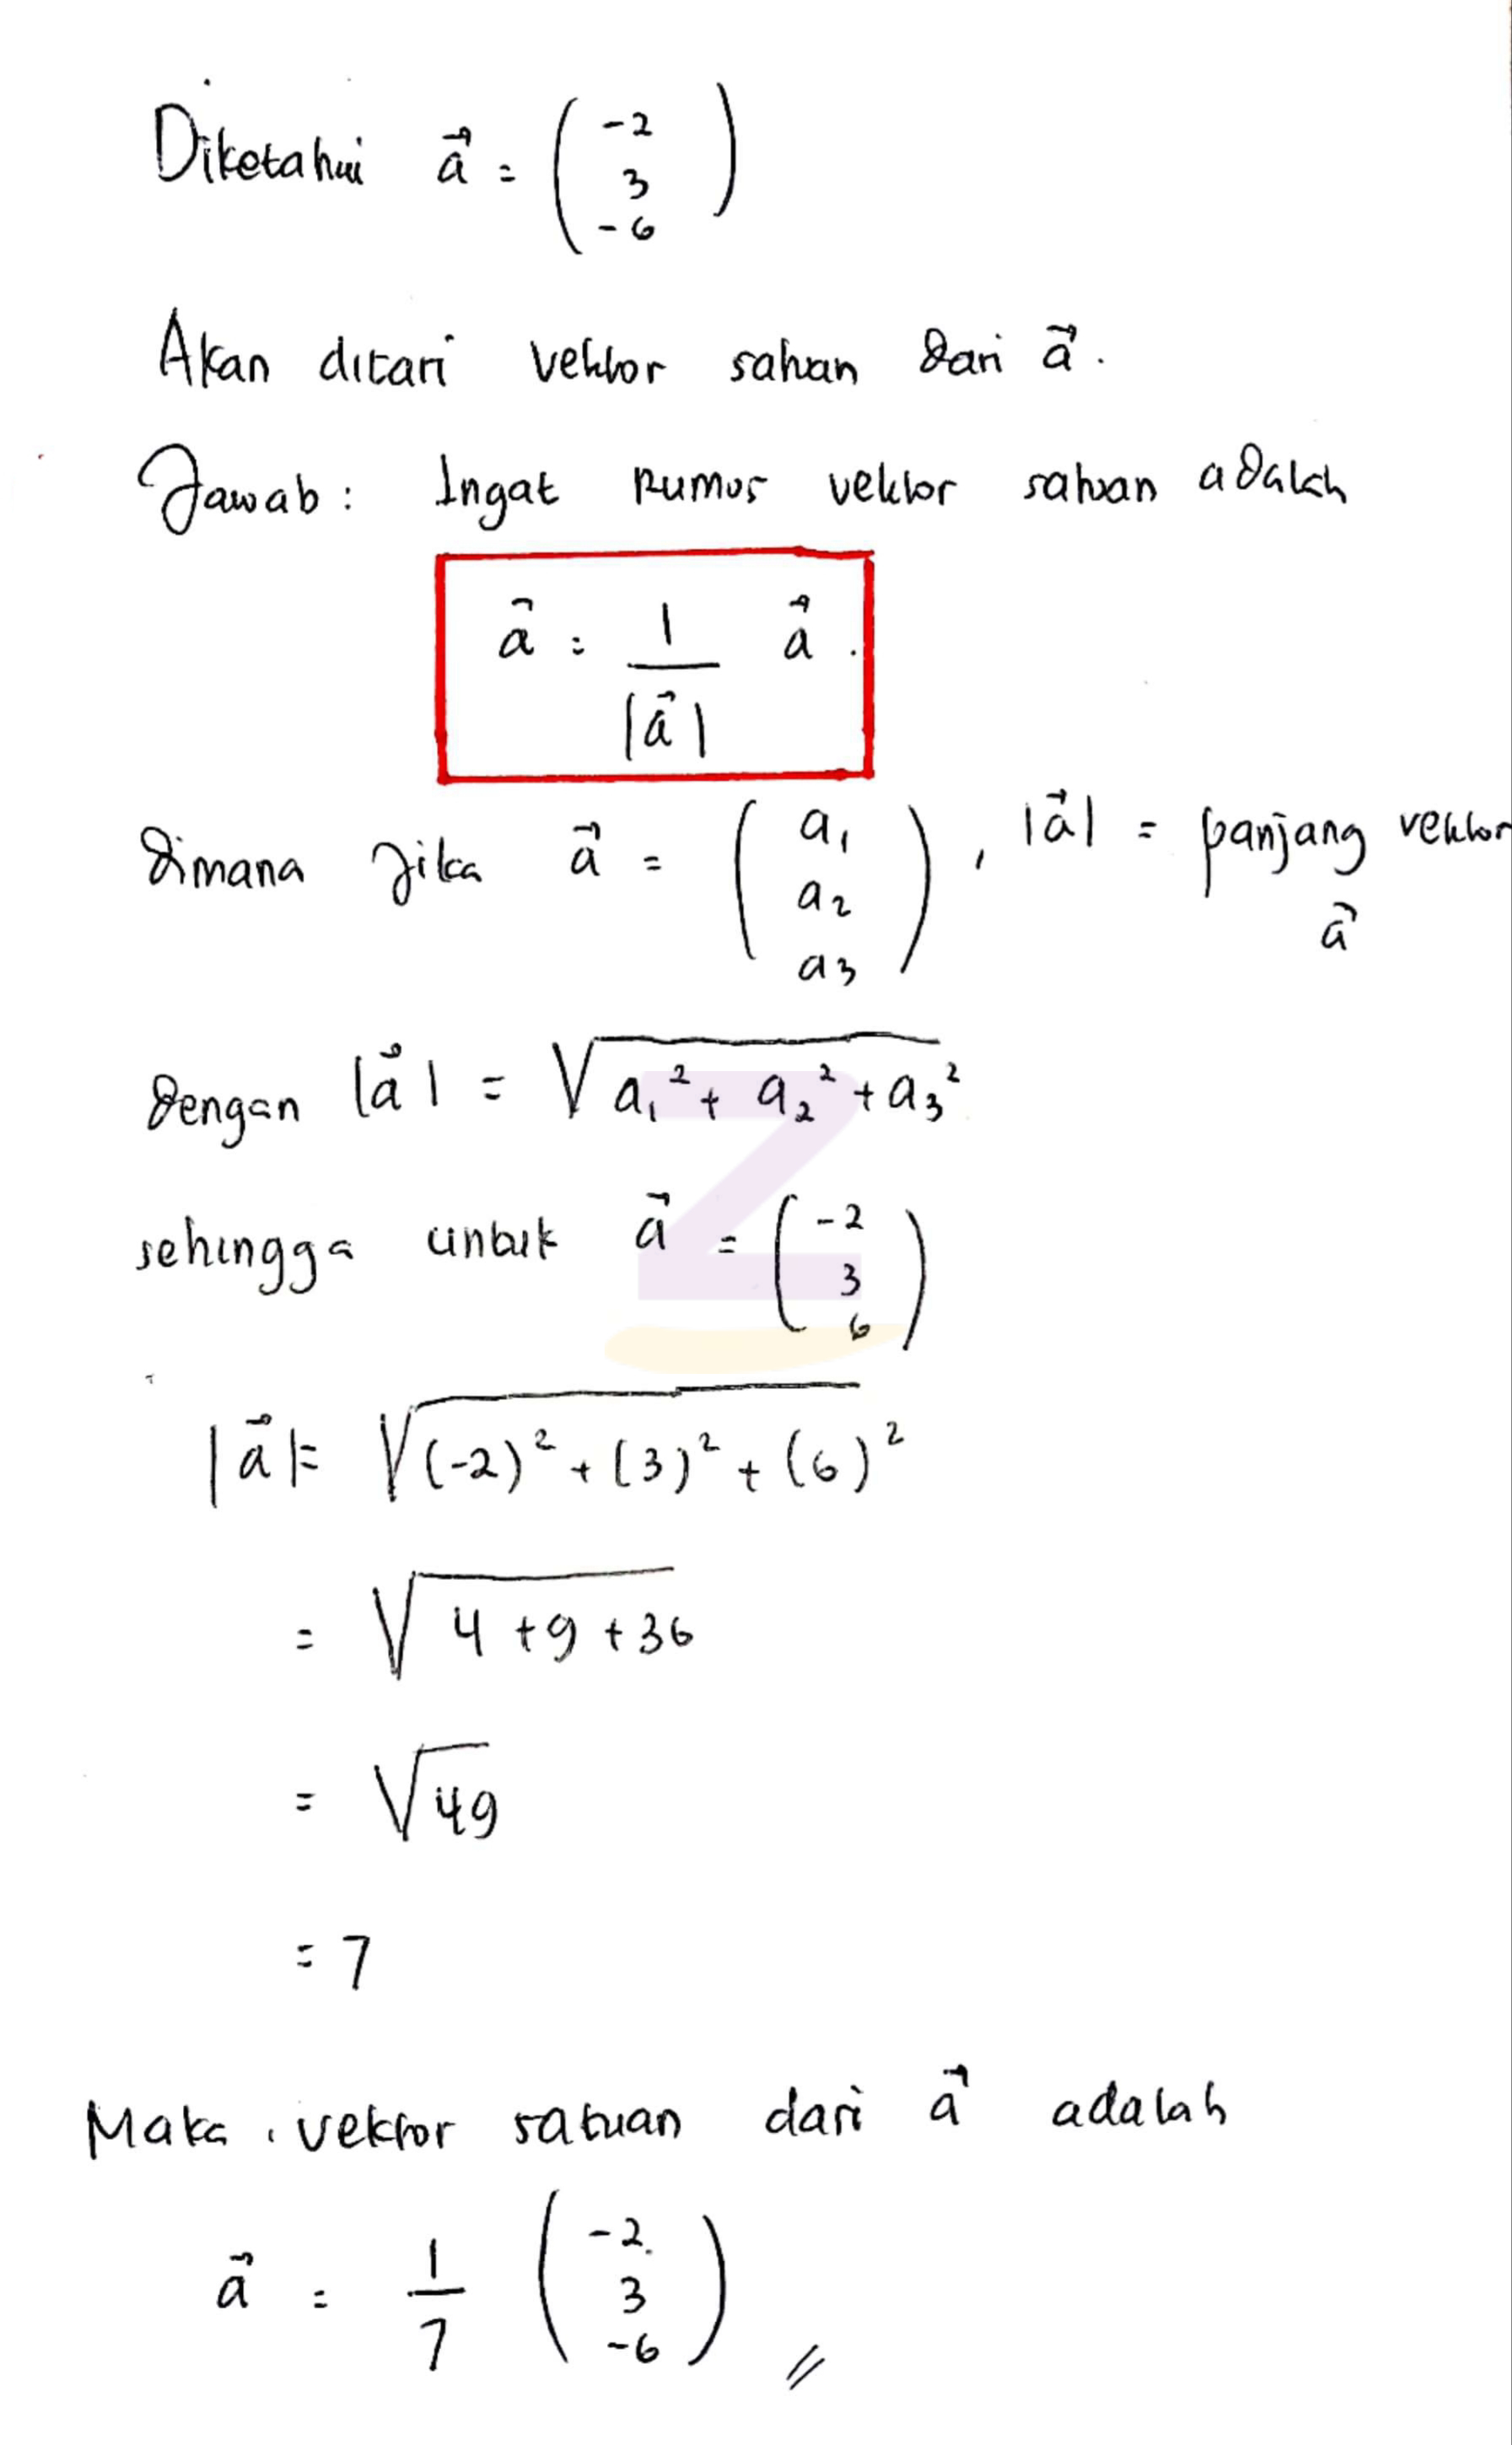 Diketahui a⃗ = (-2
3
-6)
Akan dicari vektor satuan dari a⃗.
Jawab: Ingat Rumus vektor satuan adalah
a⃗ = 1/|a⃗| a⃗.
Dimana Jika a⃗ = (a₁
a₂
a₃), |a⃗| = panjang vektor
a⃗
Dengan |a⃗| = √a₁² + a₂² + a₃²
sehingga untuk a⃗ = (-2
3
6)
|a⃗| = √(-2)² + (3)² + (6)²
= √4 + 9 + 36
= √49
= 7
Maka, vektor satuan dari a⃗ adalah
a⃗ = 1/7 (-2
3
-6) //
Z